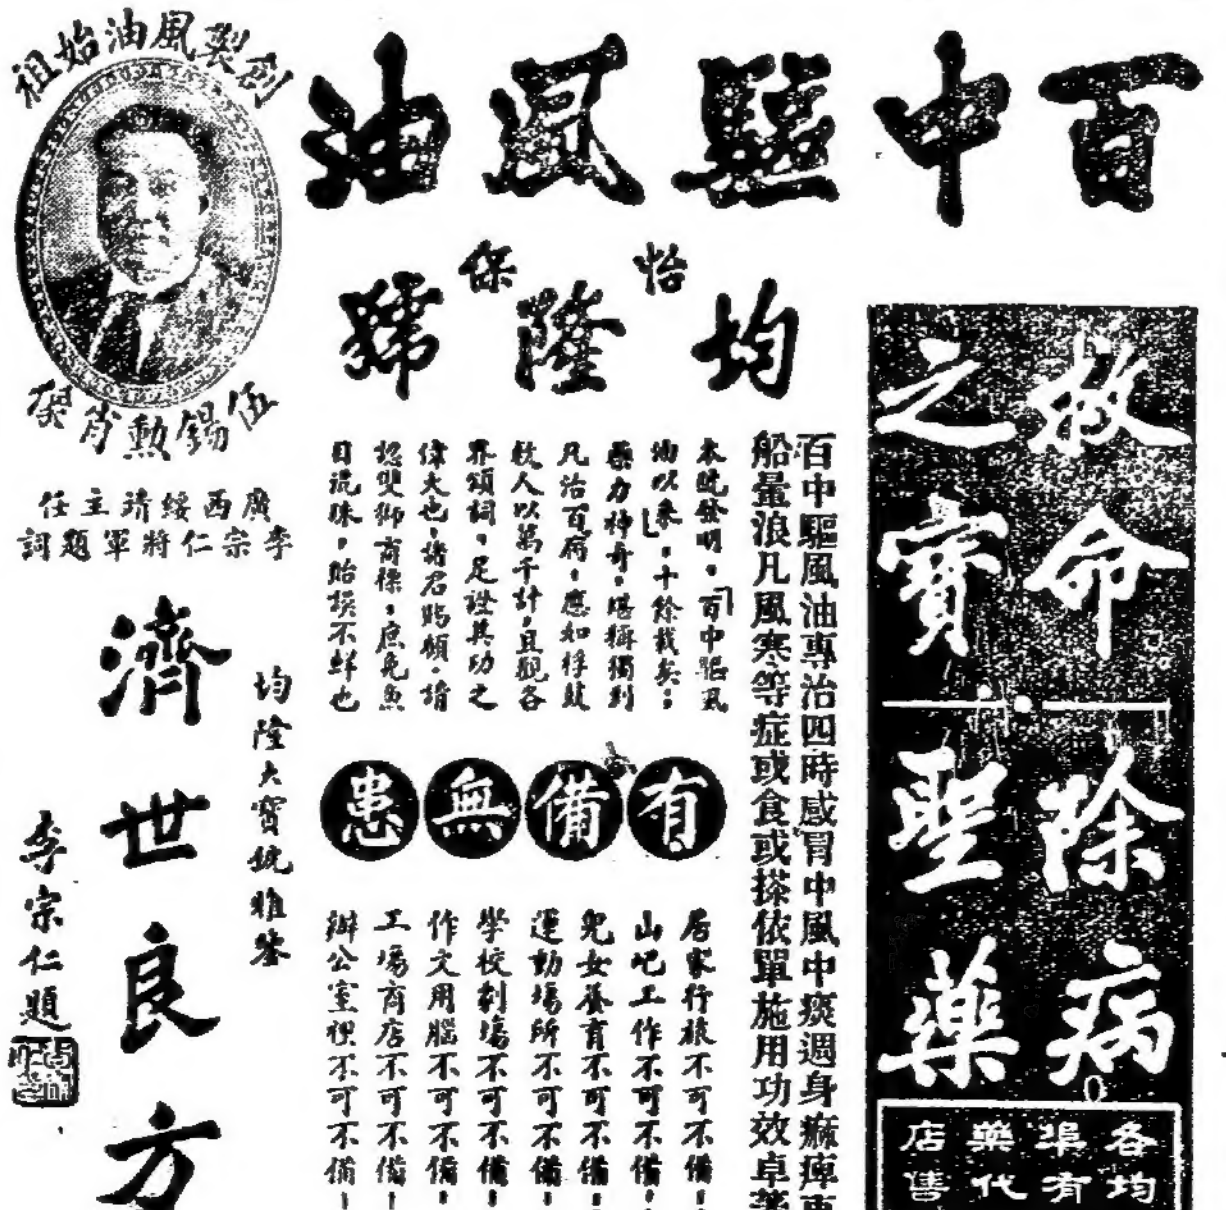 百中驅風油
怡保
均隆號
救命
之寶
除病
聖藥
各埠藥店
均有代售
百中驅風油專治四時感冒中風中痰週身痲痺
船暈浪凡風寒等症或食或搽依單施用功效卓
本號發明。「百中驅風
油」以來。十餘載矣。
藥力神奇。堪稱獨到
凡治百病。應如桴鼓
救人以萬千計。且觀各
界頌詞。足證其功之
偉大也。諸君賜顧。請
認雙獅商標。庶免魚
目混珠。貽誤不鮮也
有備無患
居家行旅不可不備
山吧工作不可不備
兒女養育不可不備
運動場所不可不備
學校劇場不可不備
作文用腦不可不備
工場商店不可不備
辦公室裡不可不備
創製風油始祖
伍錫勳肖像
廣西綏靖主任
李宗仁將軍題詞
均隆大寶號雅鑒
濟世良方
李宗仁題